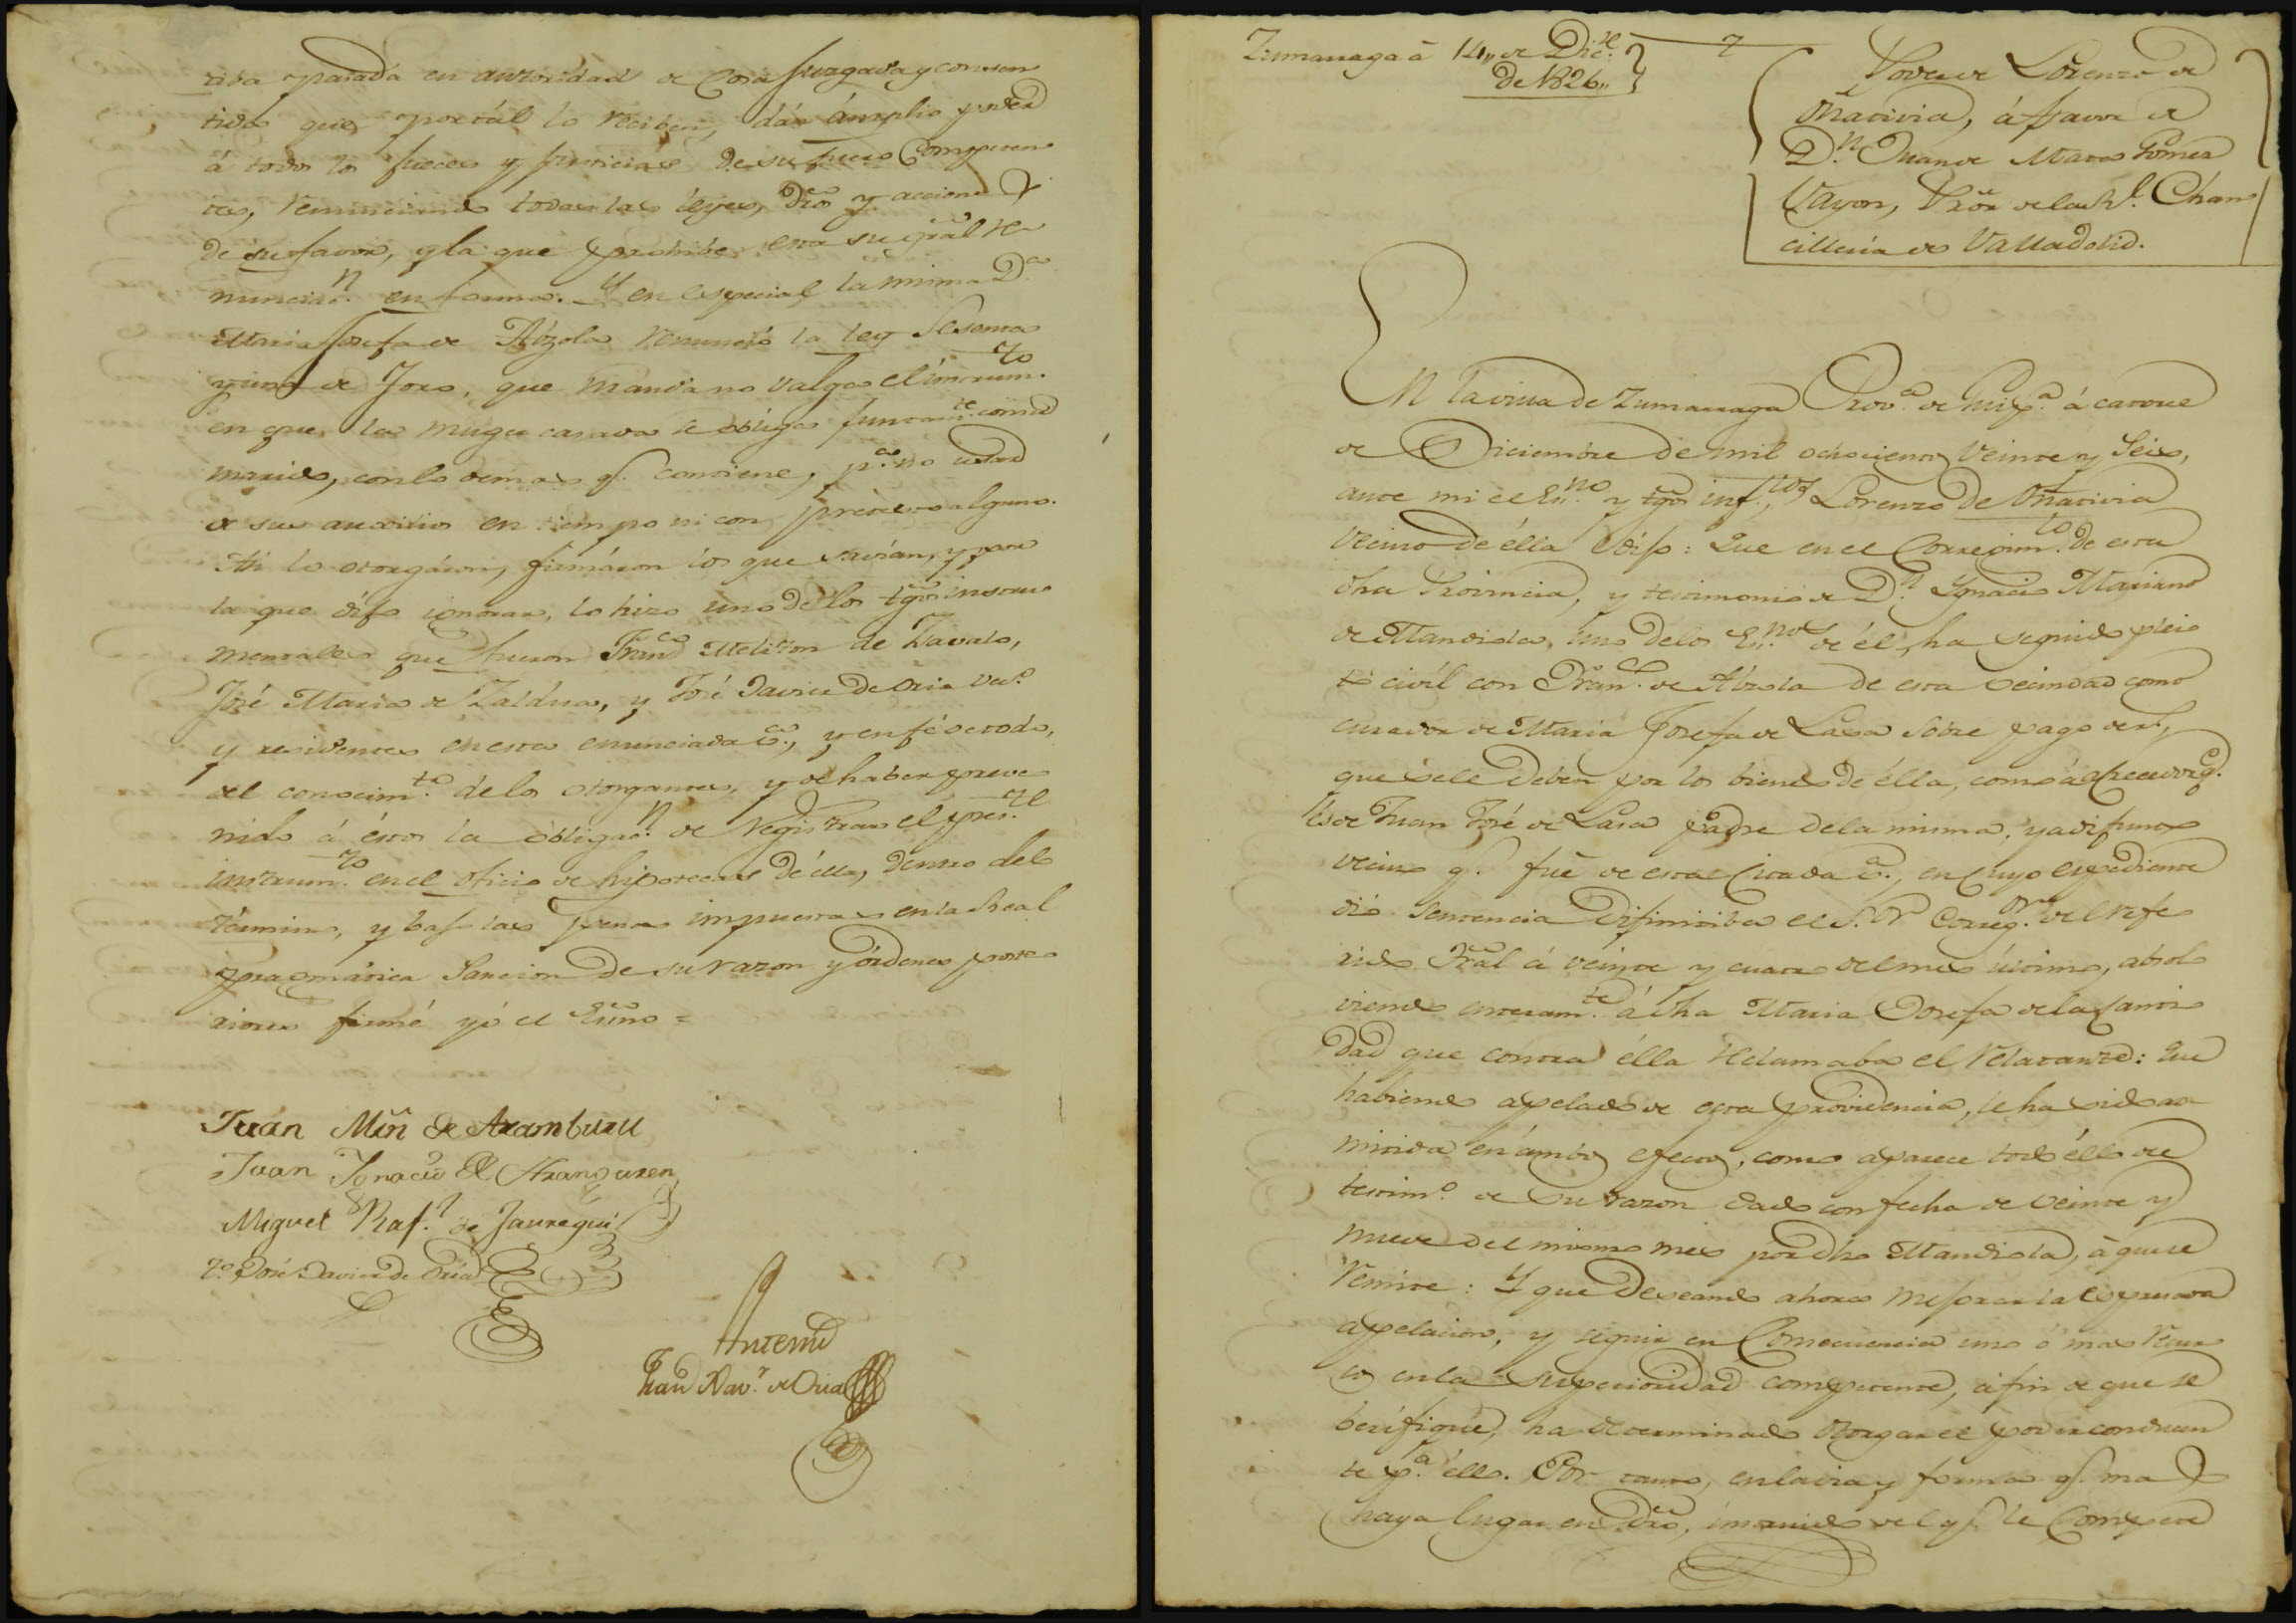 tiba pasada en autoridad de Cosa juzgada y consen
tida que por tál lo reciben, dán ámplio poder
á todos los Jueces y Justicias de su fuero Competen
tes, renunciando todas las léyes, dr̃os y acciones
de su favor, y la que prohibe esta su grál re
nunciac.n en forma. Y en especial la misma D.a
Maria Josefa de Abzola renunció la ley Sesenta
y una de Toro, que manda no valga el instrum.to
en que la muger casada se obliga juntam.te con su
marido, con lo demas q.e contiene, p.a no usar
de su auxilio en tiempo ni con pretexto alguno.
Asi lo otorgáron, firmáron los que savian, y por
la que dijo ignorar, lo hizo uno de los tg̃os instru
mentales que fueron Fran.co Meliton de Zavalo,
José Maria de Zaldua, y José Javier de Oria vec.s
y residentes en esta enunciada v.a, y en fé de todo,
del conocim.to de los otorgantes, y de haber preve
nido á éstos la obligac.n de registrar el pres.te
instrum.to en el oficio de hipotecas de élla, dentro del
término, y bajo las penas impuestas en la Real
pragmática Sancion de su razon y órdenes poste
riores firmé yó el Esc̃no =
Juan Mr̃n de Aramburu
Juan Ygnacio de Aranguren
Miguel Raf.l de Jauregui
T.o José Javier de Oria
Antemi
Fran.co Xav.r de Oria
Zumarraga á 14,, de Dic.e
de 1826,,
7
Poder de Lorenzo de
Oñativia, á favor de
D.n Juan de Mata Gomez
Vayon, Pr̃or de la R.l Chan
cilleria de Valladolid.
En la villa de Zumarraga Prov.a de Guip.a á catorce
de Diciembre de mil ochocientos veinte y Seis,
ante mi el Es.no y tg̃os inf.tos Lorenzo de Oñativia
vecino de élla dijo: Que en el Corregim.to de esta
dha Provincia, y testimonio de D.n Ygnacio Mariano
de Mandiola, uno de los Es.nos de él, ha seguido plei
to civíl con Fran.co de Abzola de esta vecindad como
curador de Maria Josefa de Lasa sobre pago de r.s
que se le deben por los bienes de élla, como á
de Juan José de Lasa padre de la misma, ya difunto
vecino q.e fué de esta citada v.a, en cuyo expediente
dió Sentencia Difinitiba el S.or Correg.or del refe
rido Tr̃al á veinte y cuatro del mes último, absol
viendo enteram.te á dha Maria Josefa de la canti
dad que contra élla reclamaba el relatante: Que
habiendo apelado de esta providencia, le ha sido ad
mitida en ámbos efectos, como aparece todo éllo del
testim.o de su razon dado con fecha de veinte y
nueve del mismo mes por dho Mandiola, á que se
remite: Y que deseando ahora mejorar la espresada
apelacion, y seguir en Consecuencia uno ó mas recur
sos en la Superioridad competente, á fin de que se
berifique, ha determinado otorgar el poder conducen
te p.a éllo. Por tanto, en la via y forma q.e mas
haya lugar en dr̃o, instruido del q.e le Compete